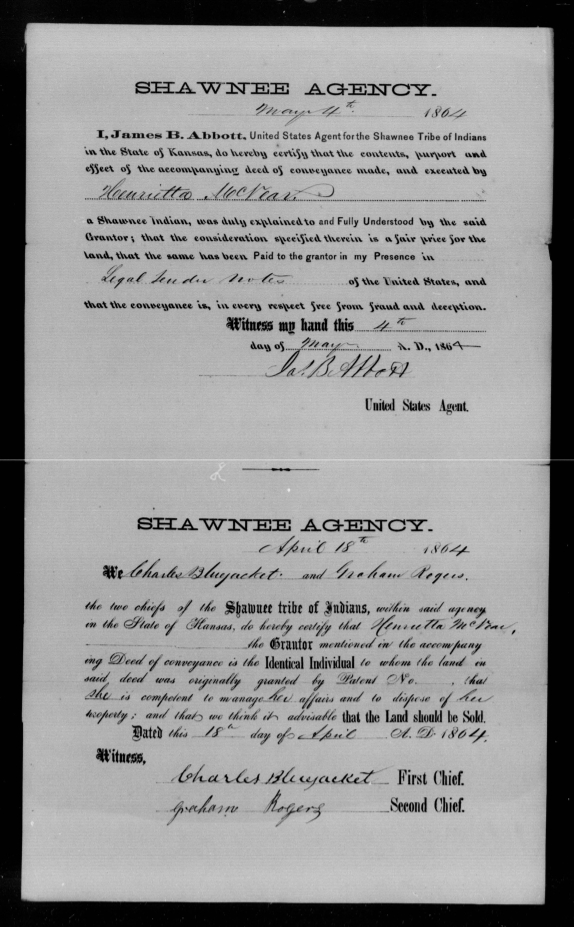 SHAWNEE AGENCY.
May 4th. 1864
I, James B. Abbott, United States Agent for the Shawnee Tribe of Indians
in the State of Kansas, do hereby certify that the contents, purport and
effect of the accompanying deed of conveyance made, and executed by
Henrietta McVear
a Shawnee Indian, was duly explained to and Fully Understood by the said
Grantor; that the consideration specified therein is a fair price for the
land, that the same has been Paid to the grantor in my Presence in
Legal tender notes of the United States, and
that the conveyance is, in every respect free from fraud and deception.
Witness my hand this 4th
day of May A. D., 1864
Jas. B. Abbott
United States Agent.
SHAWNEE AGENCY.
April 18th 1864
We Charles Bluejacket. and Graham Rogers.
the two chiefs of the Shawnee tribe of Indians, within said agency
in the State of Kansas, do hereby certify that Henrietta McVear,
the Grantor mentioned in the accompany
ing Deed of conveyance is the Identical Individual to whom the land in
said deed was originally granted by Patent No. , that
she is competent to manage her affairs and to dispose of her
property; and that we think it advisable that the Land should be Sold.
Dated this 18th day of April A. D 1864.
Witness,
Charles Bluejacket First Chief.
Graham Rogers Second Chief.